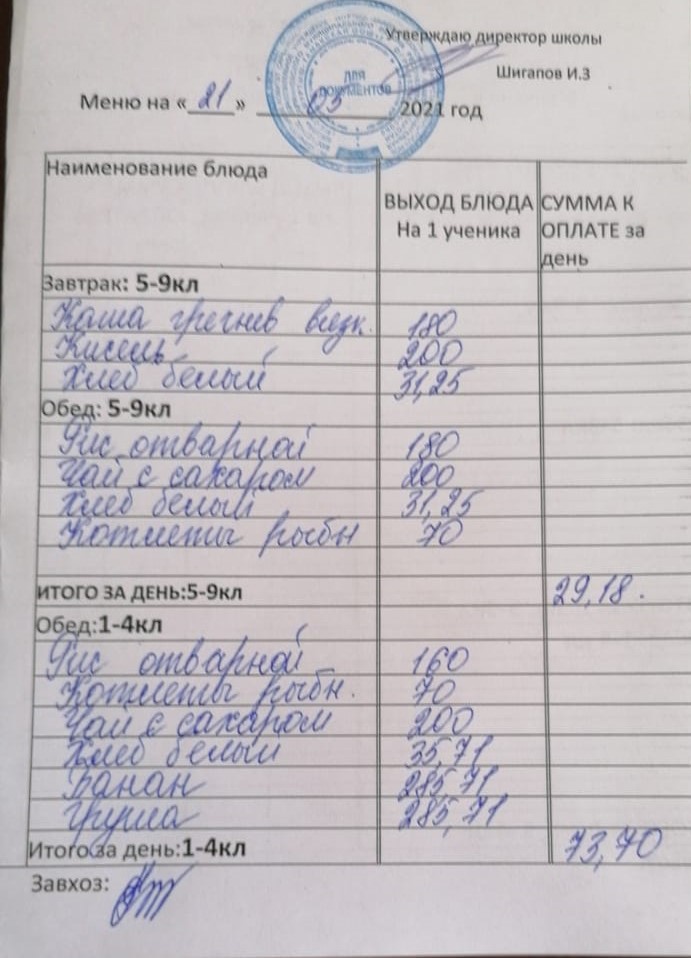 Утверждаю директор школы
Шигапов И.З
ДЛЯ ДОКУМЕНТОВ
Меню на «21» 03 2021 год
Наименование блюда
ВЫХОД БЛЮДА На 1 ученика
СУММА К ОПЛАТЕ за день
Завтрак: 5-9кл
Каша гречнев вязк. 180
Кисель 200
Хлеб белый 31,25
Обед: 5-9кл
Рис отварной 180
Чай с сахаром 200
Хлеб белый 31,25
Котлеты рыбн 70
ИТОГО ЗА ДЕНЬ:5-9кл 29,18.
Обед:1-4кл
Рис отварной 160
Котлеты рыбн. 70
Чай с сахаром 200
Хлеб белый 35,71
Банан 285,71
Груша 285,71
Итого за день:1-4кл 73,70
Завхоз: